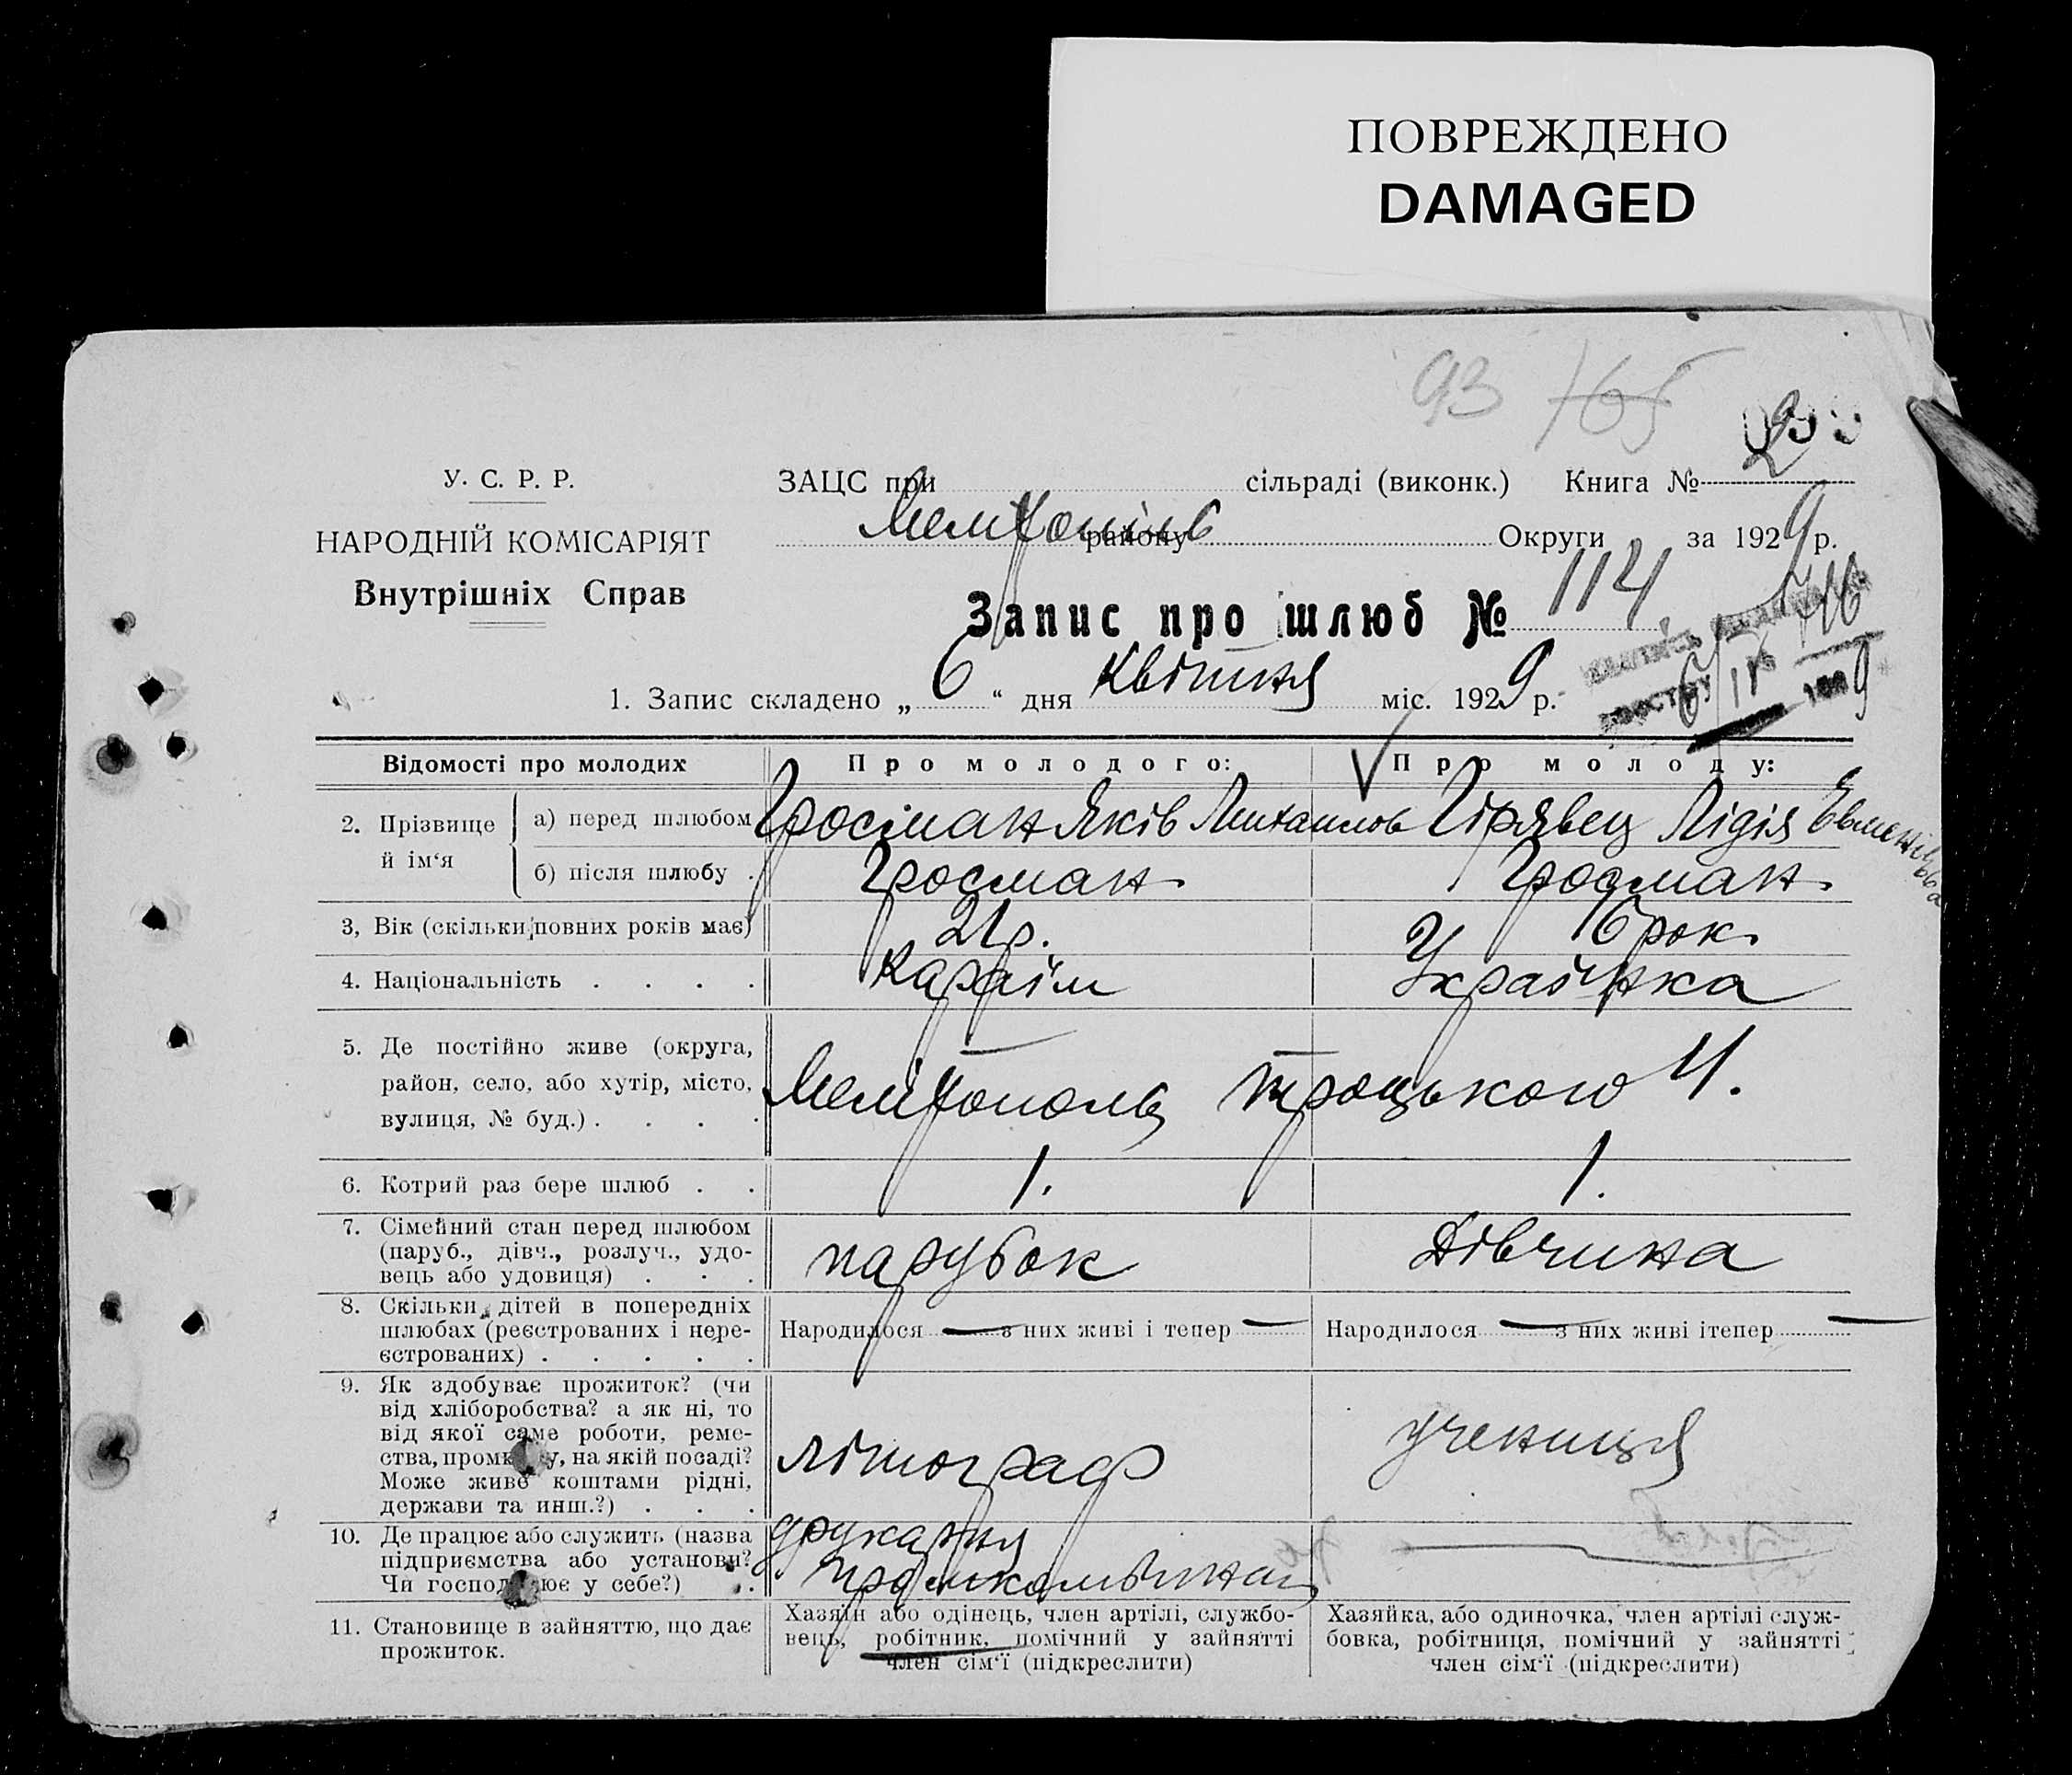 ПОВРЕЖДЕНО
DAMAGED
93 165
У. С. Р. Р.
НАРОДНІЙ КОМІСАРІЯТ
Внутрішніх Справ
ЗАЦС при сільраді (виконк.) Книга № 2
району Округи за 1929 р.
Запис про шлюб № 114
1. Запис складено „ 6 “ дня Квітня міс. 1929 р.
Відомості про молодих
Про молодого:
Про молоду:
2. Прізвище й ім‘я
а) перед шлюбом
Гросман Яків
Гірявец Лідія
б) після шлюбу .
Гросман
Гросман
3, Вік (скільки повних років має)
21 р.
рок.
4. Національність . . . .
Караїм
Українка
5. Де постійно живе (округа,
район, село, або хутір, місто,
вулиця, № буд.) . . . .
Мелітополь Троцького 4.
6. Котрий раз бере шлюб . .
1.
1.
7. Сімейний стан перед шлюбом
(паруб., дівч., розлуч., удо-
вець або удовиця) . . .
парубок
Дівчина
8. Скільки дітей в попередніх
шлюбах (реєстрованих і нере-
єстрованих) . . . . .
Народилося — з них живі і тепер —
Народилося — з них живі ітепер —
9. Як здобуває прожиток? (чи
від хліборобства? а як ні, то
від якої саме роботи, реме-
ства, на якій посаді?
Може живе коштами рідні,
держави та инш.?) . . .
літограф
учениця
10. Де працює або служить (назва
підприємства або установи?
Чи у себе?) . .
друкарня
Промкомбінат
—
11. Становище в зайняттю, що дає
прожиток.
Хазяїн або одінець, член артілі, службо-
вець, робітник, помічний у зайнятті
член сім‘ї (підкреслити)
Хазяйка, або одиночка, член артілі служ-
бовка, робітниця, помічний у зайнятті
член сім‘ї (підкреслити)